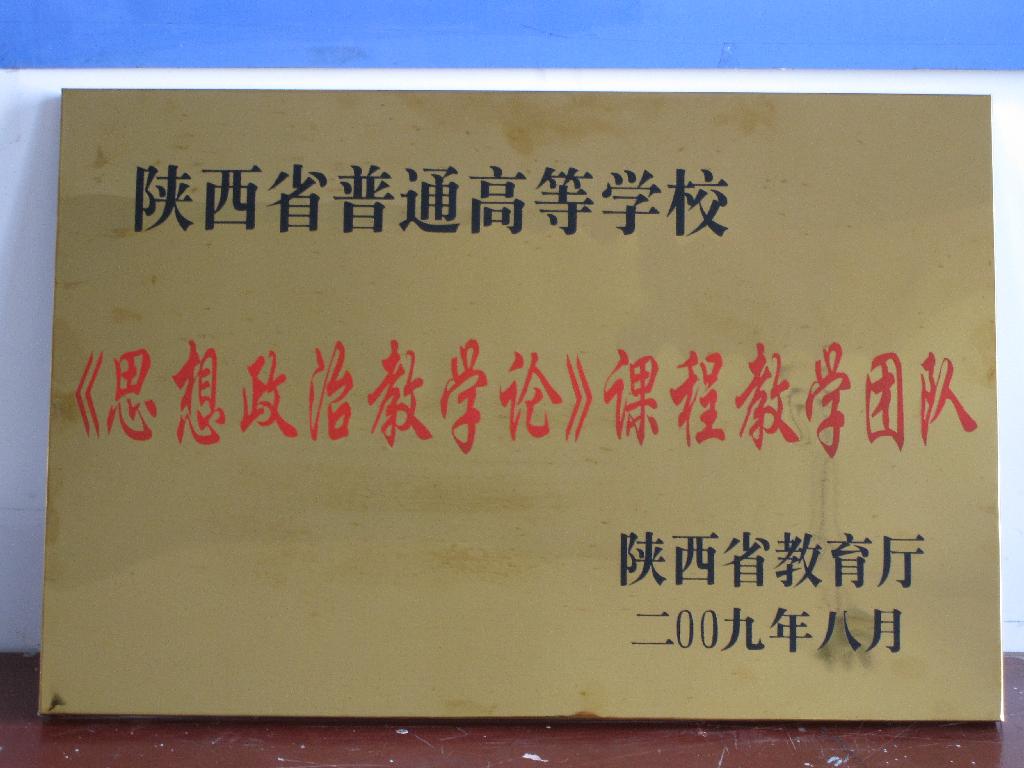 陕西省普通高等学校
《思想政治教学论》课程教学团队
陕西省教育厅
二00九年八月